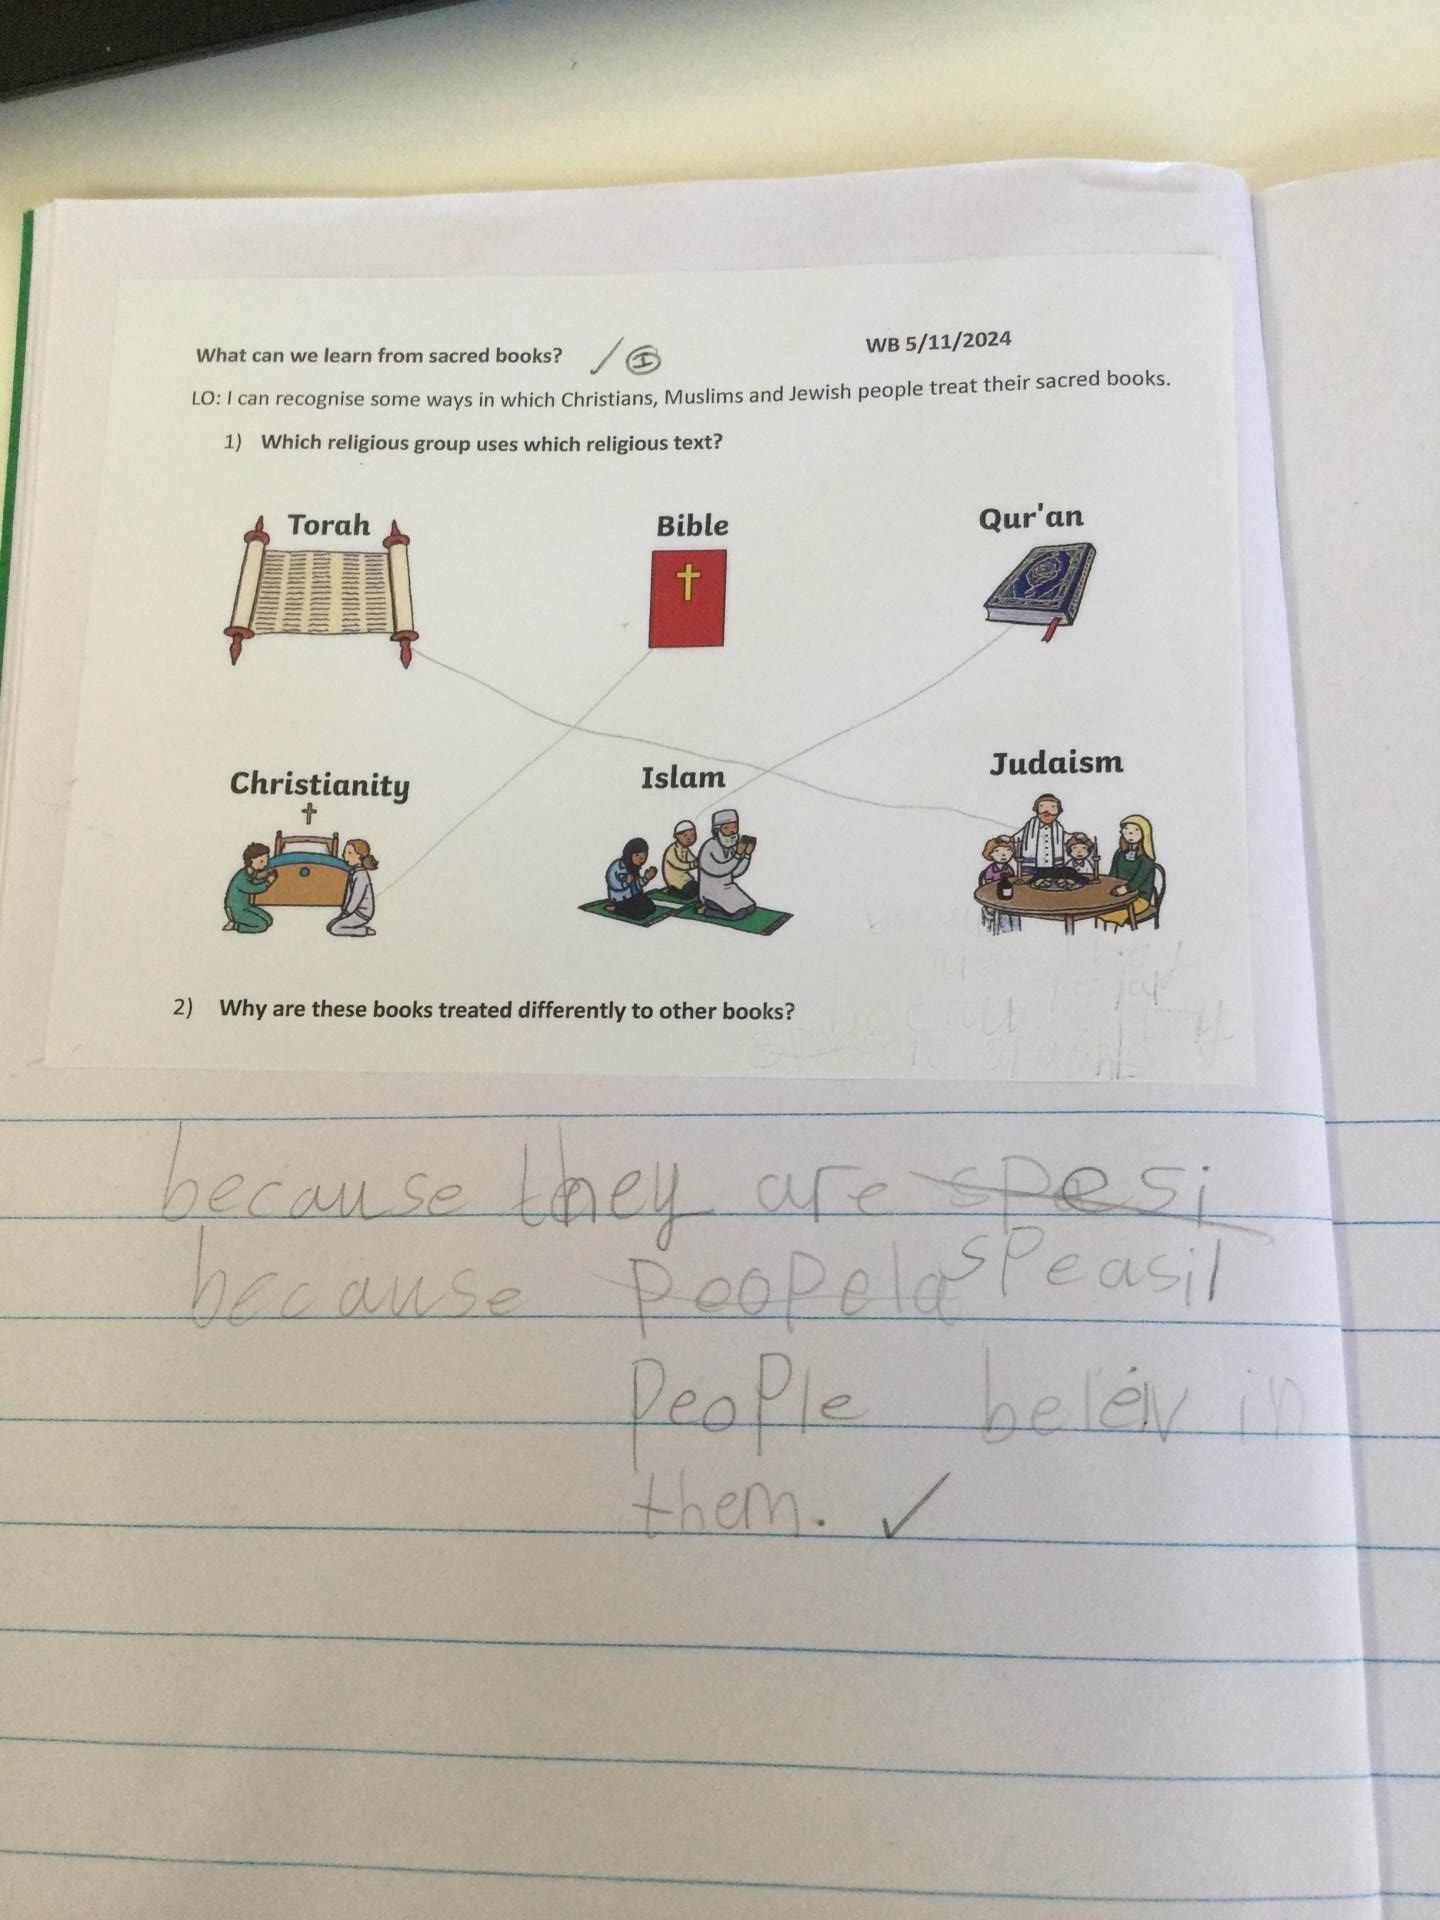 What can we learn from sacred books? I
WB 5/11/2024
LO: I can recognise some ways in which Christians, Muslims and Jewish people treat their sacred books.
1) Which religious group uses which religious text?
Torah Bible Qur'an
Christianity Islam Judaism
2) Why are these books treated differently to other books?
because they are spesi
because poopela speasil
people beleiv in
them.